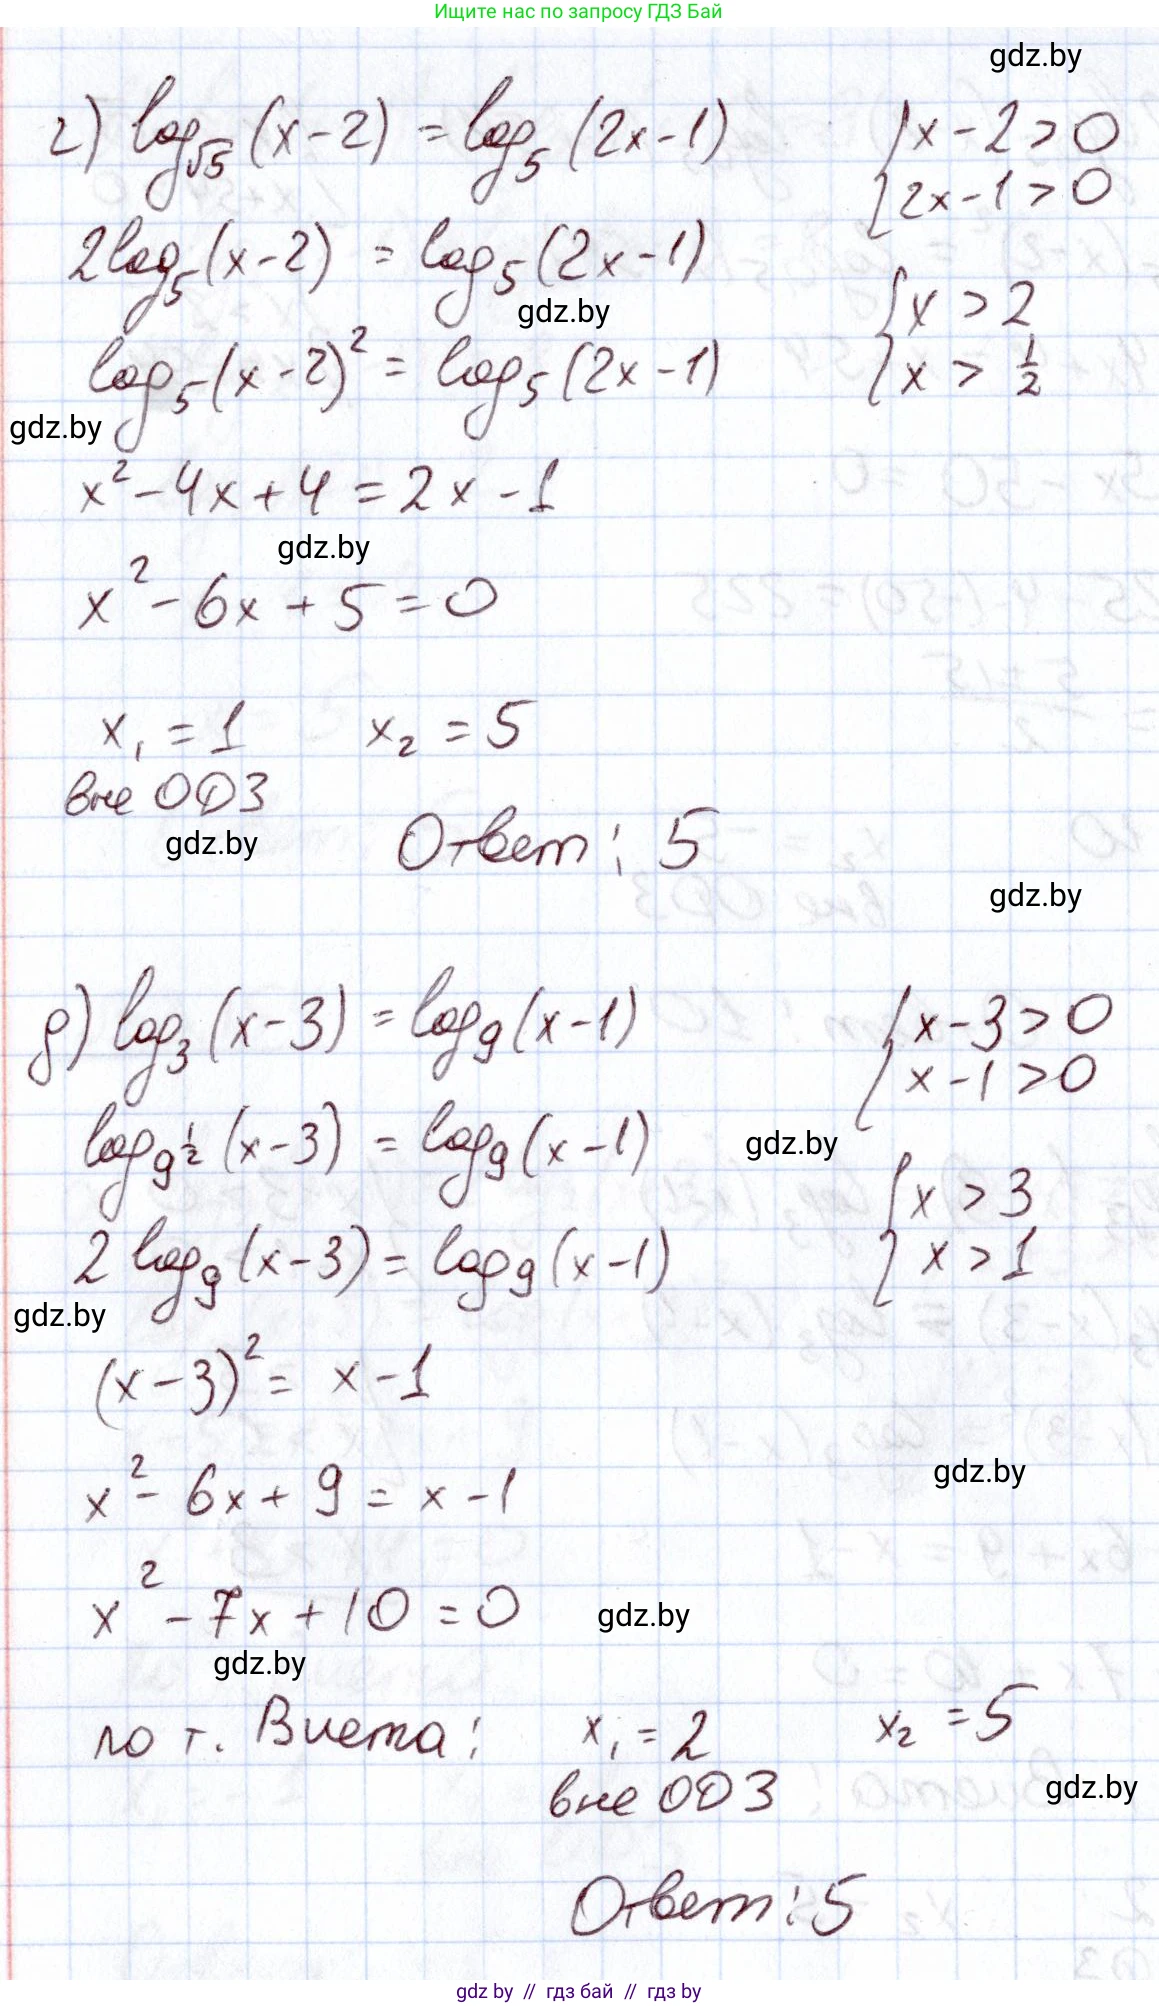 Ищите нас по запросу ГДЗ Бай
gdz.by
г) log√5 (x-2) = log5 (2x-1) { x-2>0
{ 2x-1>0
2log5 (x-2) = log5 (2x-1)
gdz.by
{ x > 2
log5 (x-2)² = log5 (2x-1) { x > 1/2
gdz.by
x² - 4x + 4 = 2x - 1
gdz.by
x² - 6x + 5 = 0
x₁ = 1 x₂ = 5
вне ОДЗ
gdz.by
Ответ: 5
gdz.by
д) log3 (x-3) = log9 (x-1) { x-3>0
{ x-1>0
log9^1/2 (x-3) = log9 (x-1)
gdz.by
{ x > 3
2 log9 (x-3) = log9 (x-1) { x > 1
gdz.by
(x-3)² = x-1
gdz.by
x² - 6x + 9 = x - 1
x² - 7x + 10 = 0
gdz.by
gdz.by
по т. Виета: x₁ = 2 x₂ = 5
вне ОДЗ
gdz.by
Ответ: 5
gdz by // гдз бай // gdz by